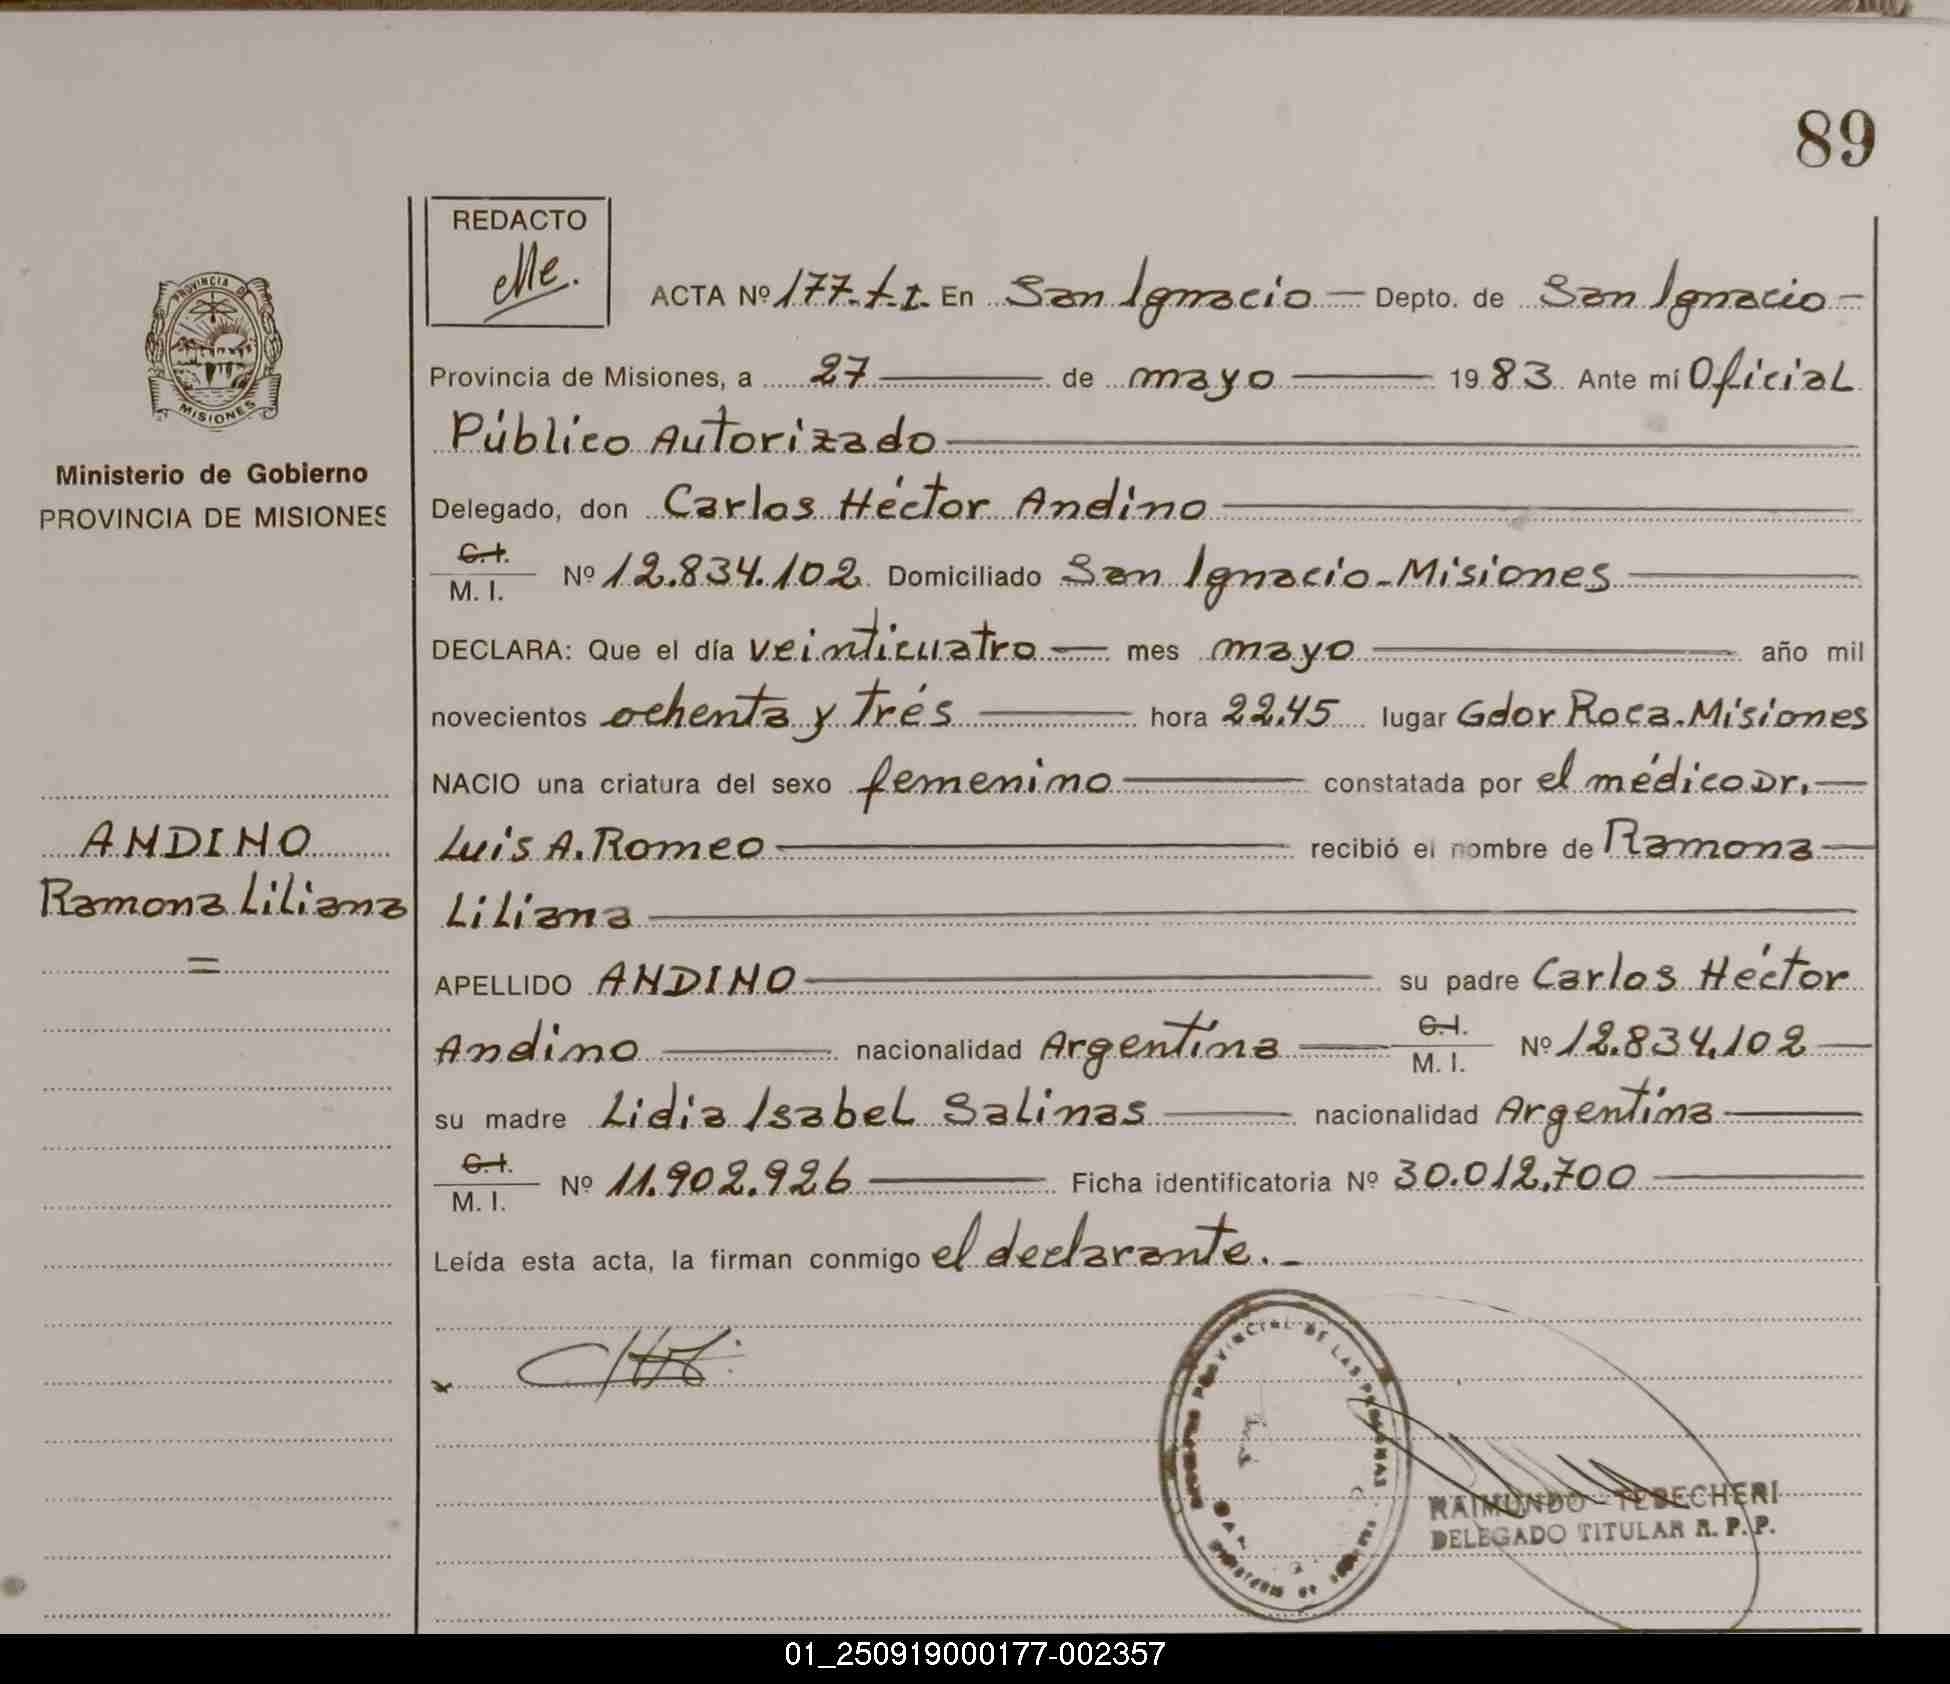 89
REDACTO
Me.
ACTA Nº 177.t.I. En San Ignacio — Depto. de San Ignacio —
PROVINCIA DE
MISIONES
Provincia de Misiones, a 27 — de mayo — 1983 Ante mí Oficial
Público Autorizado
Ministerio de Gobierno
PROVINCIA DE MISIONES
Delegado, don Carlos Héctor Andino
C.I.
M. I. Nº 12.834.102 Domiciliado San Ignacio - Misiones
DECLARA: Que el día veinticuatro — mes mayo — año mil
novecientos ochenta y trés — hora 22.45 lugar Gdor Roca. Misiones
NACIO una criatura del sexo femenino — constatada por el médico Dr. —
ANDINO
Ramona Liliana
=
Luis A. Romeo — recibió el nombre de Ramona —
Liliana
APELLIDO ANDINO — su padre Carlos Héctor
Andino — nacionalidad Argentina — C.I.
M. I. Nº 12.834.102 —
su madre Lidia Isabel Salinas — nacionalidad Argentina —
C.I.
M. I. Nº 11.902.926 — Ficha identificatoria Nº 30.012.700 —
Leída esta acta, la firman conmigo el declarante. -
PROVINCIAL DE LAS PERSONAS
RAIMUNDO TEDECHERI
DELEGADO TITULAR R. P. P.
01_250919000177-002357